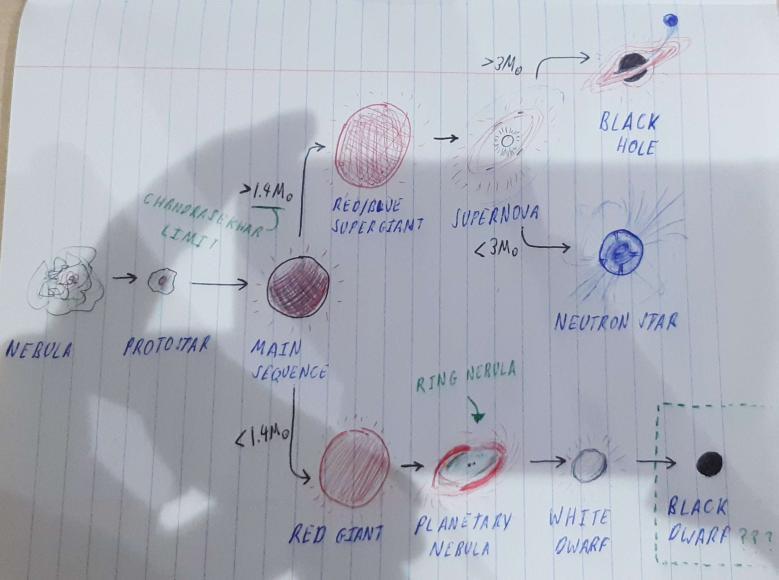 >3M⊙
BLACK
HOLE
>1.4M⊙
CHANDRASEKHAR
LIMIT
RED/BLUE
SUPERGIANT
SUPERNOVA
<3M⊙
NEUTRON STAR
NEBULA
PROTOSTAR
MAIN
SEQUENCE
RING NEBULA
<1.4M⊙
RED GIANT
PLANETARY
NEBULA
WHITE
DWARF
BLACK
DWARF ???